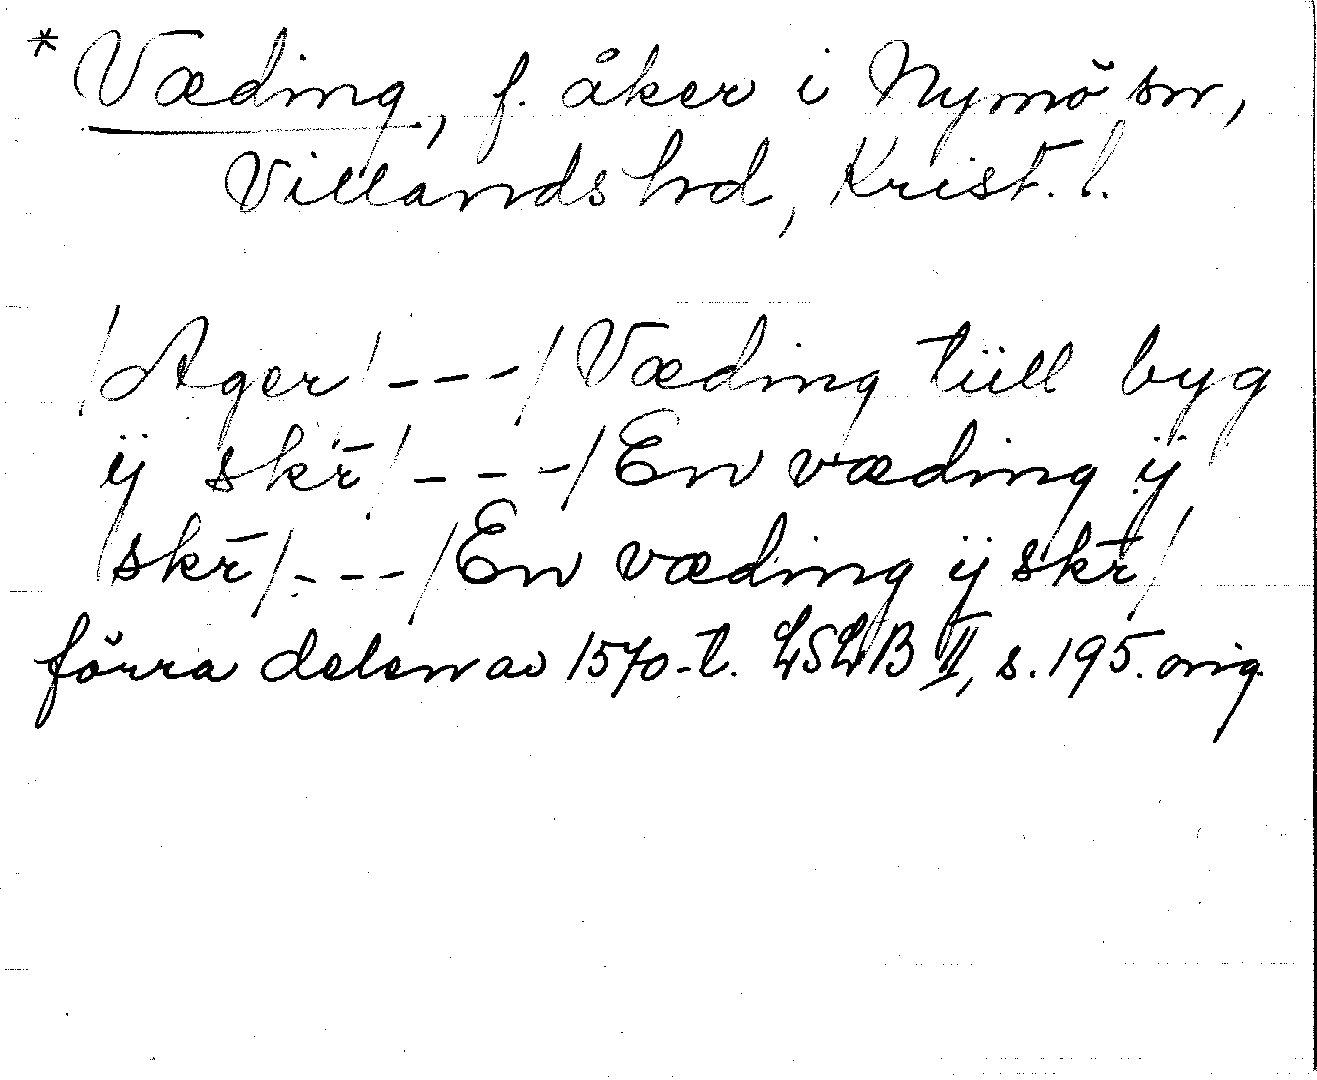 *Væding, f. åker i Nymö sn,
Villands hd, Krist. l.
/Ager/---/Væding tüll byg
ij skr̄/---/En væding ij
skr̄/---/En væding ij skr̄/
förra delen av 1570-t. LSLB II, s. 195. orig.